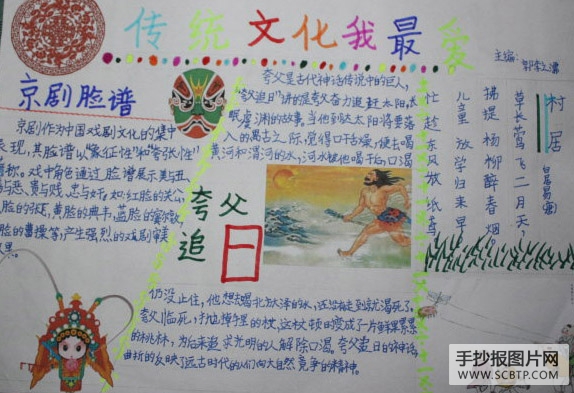 传统文化我最爱
主编:
京剧脸谱
京剧作为中国戏剧文化的集中
表现,其脸谱以"象征性"和"夸张性"
著称。戏中角色通过脸谱展示美与丑
与恶、贵与贱、忠与奸。如:红脸的关公
脸的张飞、黄脸的典韦、蓝脸的窦尔敦
脸的曹操等,产生强烈的戏剧审美
果。
夸父是古代神话传说中的巨人,
夸父追日"讲的是夸父奋力追赶太阳,长
眠虞渊的故事。当他到达太阳将要落
入的禺谷之际,觉得口干舌燥,便去喝
黄河和渭河的水,河水被他喝干后口渴
夸父
追日
仍没止住,他想去喝北方大泽的水,还没有走到就渴死了。
夸父临死,抛掉手里的杖,这杖顿时变成了一片鲜果累累
的桃林,为后来追求光明的人解除口渴。夸父追日的神话,
曲折的反映了远古时代的人们向大自然竞争的精神。
村居
草长莺飞二月天,
拂堤杨柳醉春烟。
儿童放学归来早,
忙趁东风放纸鸢
手抄报图片网
WWW.SCBTP.COM